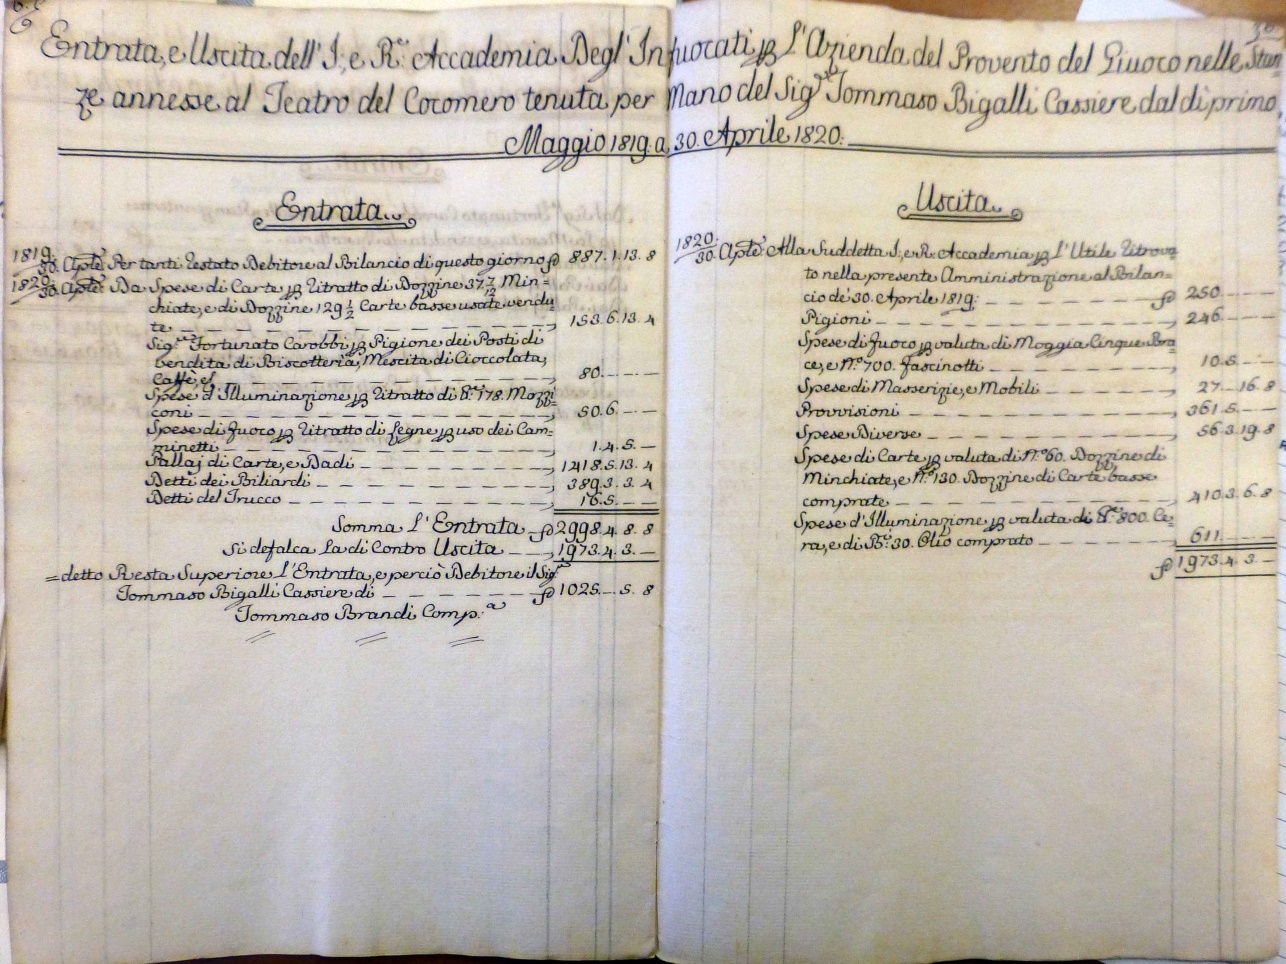 Entrata, e Uscita dell' I. e R. Accademia Degl' Infuocati per L'Azienda del Provento del Giuoco nelle Stan
ze annesse al Teatro del Cocomero tenuta per Mano del Sig.re Tommaso Bigalli Cassiere dal dì primo
Maggio 1819. a 30. Aprile 1820.
Entrata
1819.
30. Aple Per tanti restato Debitore al Bilancio di questo giorno £ 887.1.13.8
1820.
30. Aple Da Spese di Carte per Ritratto di Dozzine 37 7/12 Min=
chiate, e di Dozzine 129 1/2 Carte basse usate vendu
te 153.6.13.4
Sig.re Fortunato Carobbi per Pigione dei Posti di
vendita di Biscotteria, Mescita di Cioccolata,
Caffè, e 80.—.—
Spese d'Illuminazione per Ritratto di 178. Mozzi=
coni 50.6.—
Spese di fuoco per Ritratto di legne per uso dei Cam=
minetti 1.4.5.—
Pallaj di Carte, e Dadi 1418.5.13.4
Detti dei Biliardi 389.3.3.4
Detti del Trucco 16.5.—
Somma L'Entrata £ 2998.4.8.8
Si defalca La di Contro Uscita 1973.4.3.—
=detto Resta Superiore L'Entrata, e perciò Debitore il Sig.re
Tommaso Bigalli Cassiere di £ 1025.—.5.8
Tommaso Brandi Comp.a
Uscita
1820.
30. Aple Alla Suddetta I. e R. Accademia per L'Utile Ritrova
to nella presente Amministrazione al Bilan=
cio de' 30. Aprile 1819. £ 250.—
Pigioni 246.—
Spese di fuoco per valuta di Moggia Cinque Bra
ce, e N.o 700. Fascinotti 10.5.—
Spese di Masserizie, e Mobili 27.—.16.8
Provvisioni 361.5.—
Spese Diverse 56.3.19.8
Spese di Carte per valuta di N.o 60. Dozzine di
Minchiate, e N.o 130. Dozzine di Carte basse
comprate 410.3.6.8
Spese d'Illuminazione per valuta di 800. Ce=
ra, e di 30. Olio comprato 611.—
£ 1973.4.3.—